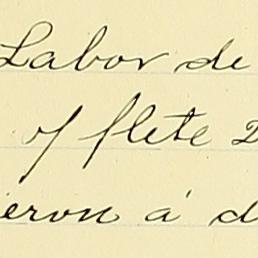 Labor de
y flete 2
ieron á d